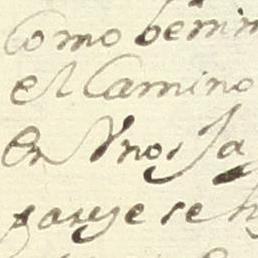 Como benim
el Camino
En Vnos Ja
se h